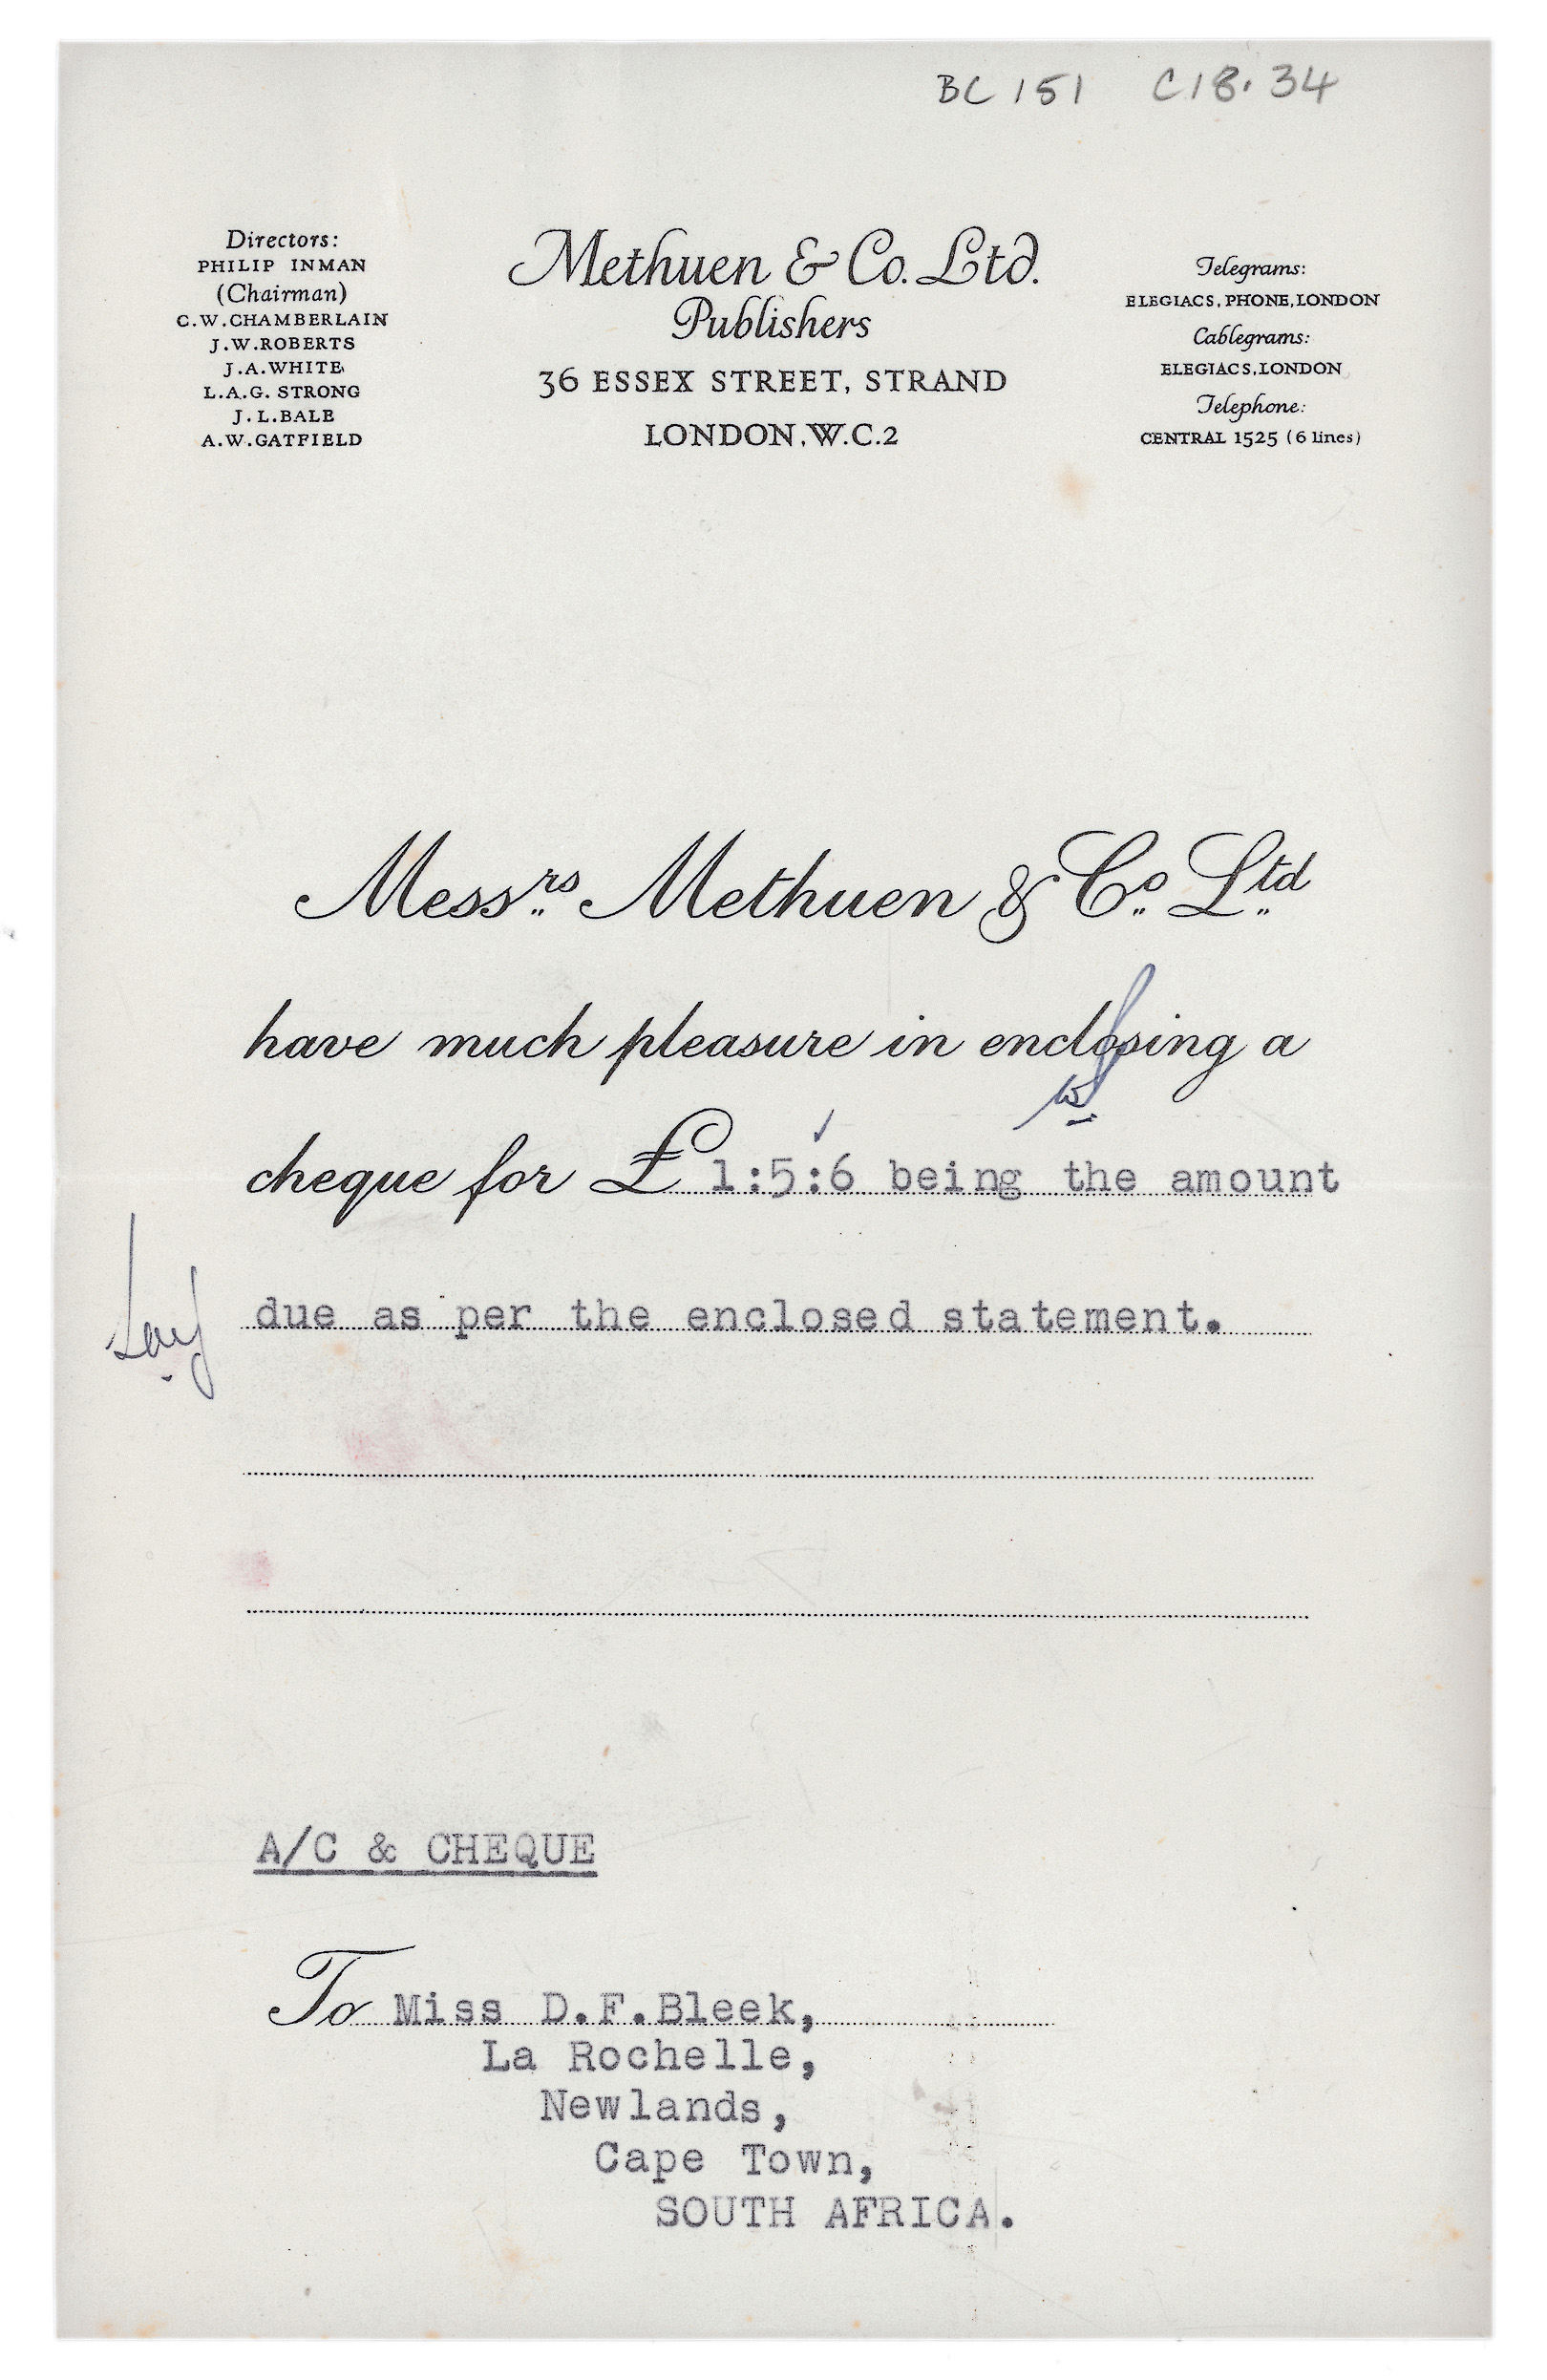 BC 151 C18.34
Directors:
PHILIP INMAN
(Chairman)
C.W.CHAMBERLAIN
J.W.ROBERTS
J.A.WHITE
L.A.G. STRONG
J.L.BALE
A.W.GATFIELD
Methuen & Co. Ltd.
Publishers
36 ESSEX STREET, STRAND
LONDON, W.C.2
Telegrams:
ELEGIACS, PHONE, LONDON
Cablegrams:
ELEGIACS, LONDON
Telephone:
CENTRAL 1525 (6 lines)
Messrs Methuen & Co Ltd
have much pleasure in enclosing a
cheque for £ 1:5:6 being the amount
due as per the enclosed statement.
A/C & CHEQUE
To Miss D.F.Bleek,
La Rochelle,
Newlands,
Cape Town,
SOUTH AFRICA.